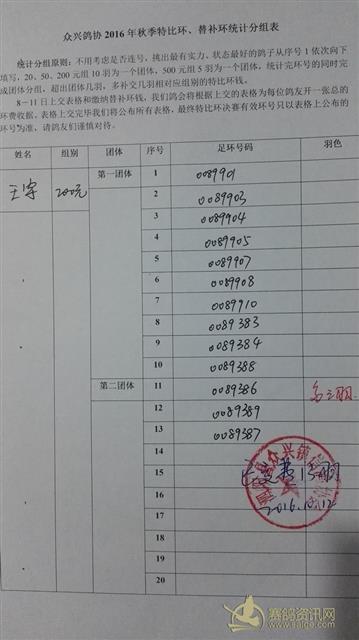 众兴鸽协 2016 年秋季特比环、替补环统计分组表
统计分组原则：不用考虑是否连号，挑出最有实力、状态最好的鸽子从序号 1 依次向下
填写，20、50、200 元组 10 羽为一个团体，500 元组 5 羽为一个团体，统计完环号的同时完
成团体分组，超出团体几羽，多补交几羽对应组别的特比环钱。
8－11 日上交表格和缴纳替补环钱，我们鸽会将根据上交的表格为每位鸽友开一张总的
环费收据，表格上交完毕我们将公布所有表格，最终特比环决赛有效环号只以表格上公布的
环号为准，请鸽友们谨慎对待。
姓名 组别 团体 序号 足环号码 羽色
王宇 200元 第一团体 1 0089901
2 0089903
3 0089904
4 0089905
5 0089907
6 0089908
7 0089910
8 0089383
9 0089384
10 0089388
第二团体 11 0089386
12 0089389
13 0089387
14
15
16
17
18
19
20
2016.10.12
赛鸽资讯网
www.saige.com